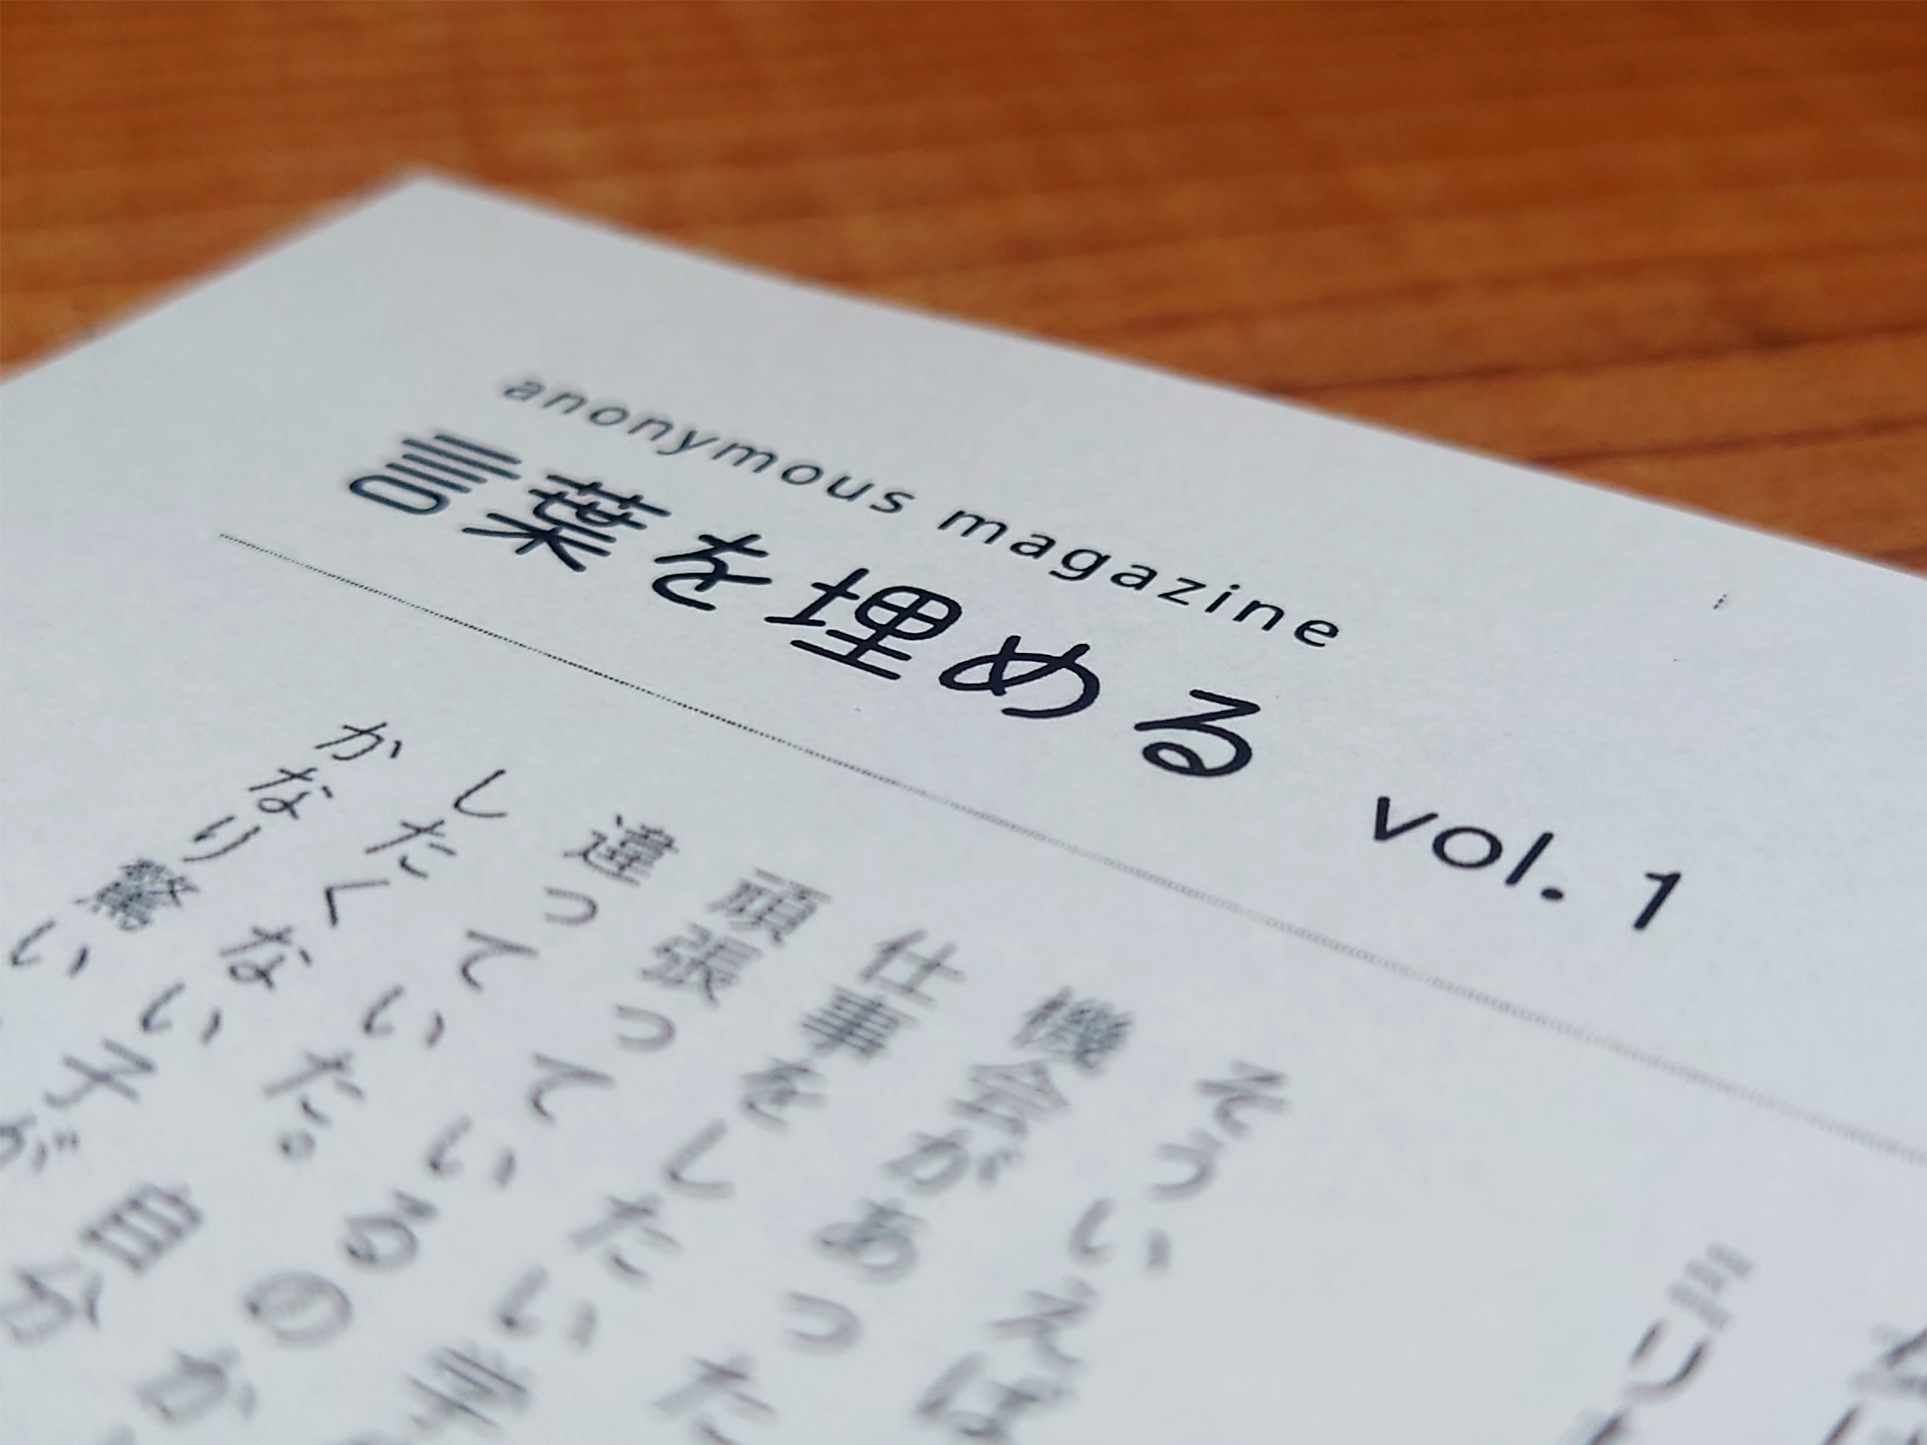 anonymous magazine
言葉を埋める vol. 1
ミリ
そういえば
機会があった
仕事をしたい
頑張っているのか
違っていた。自分
したくない子が
かなり驚い